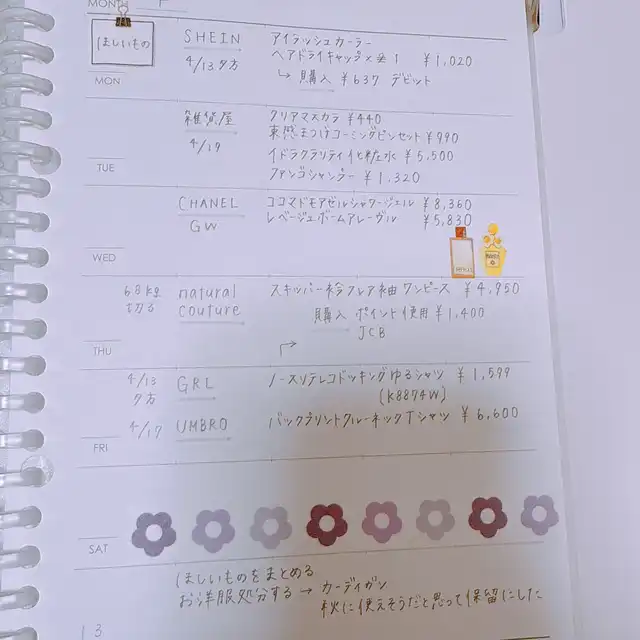 MONTH
ほしいもの
SHEIN アイラッシュカーラー
4/13夕方 ヘアドライキャップ×1 ¥1,020
↳ 購入 ¥637 デビット
MON
雑貨屋 クリアマスカラ ¥440
4/19 束感まつげコーミングピンセット ¥990
イドラクラリティ化粧水 ¥5,500
TUE ファンゴシャンプー ¥1,320
CHANEL ココマドモアゼルシャワージェル ¥8,360
GW レベージュボームアレーヴル ¥5,830
WED
68kg natural スキッパー衿フレア袖ワンピース ¥4,950
切る couture 購入 ポイント使用 ¥1,400
JCB
THU
4/13 GRL ノースリテレコドッキングゆるシャツ ¥1,599
夕方 (K8874W)
4/17 UMBRO バックプリントクルーネックTシャツ ¥6,600
FRI
SAT
ほしいものをまとめる
お洋服処分する → カーディガン
秋に使えそうだと思って保留にした
13